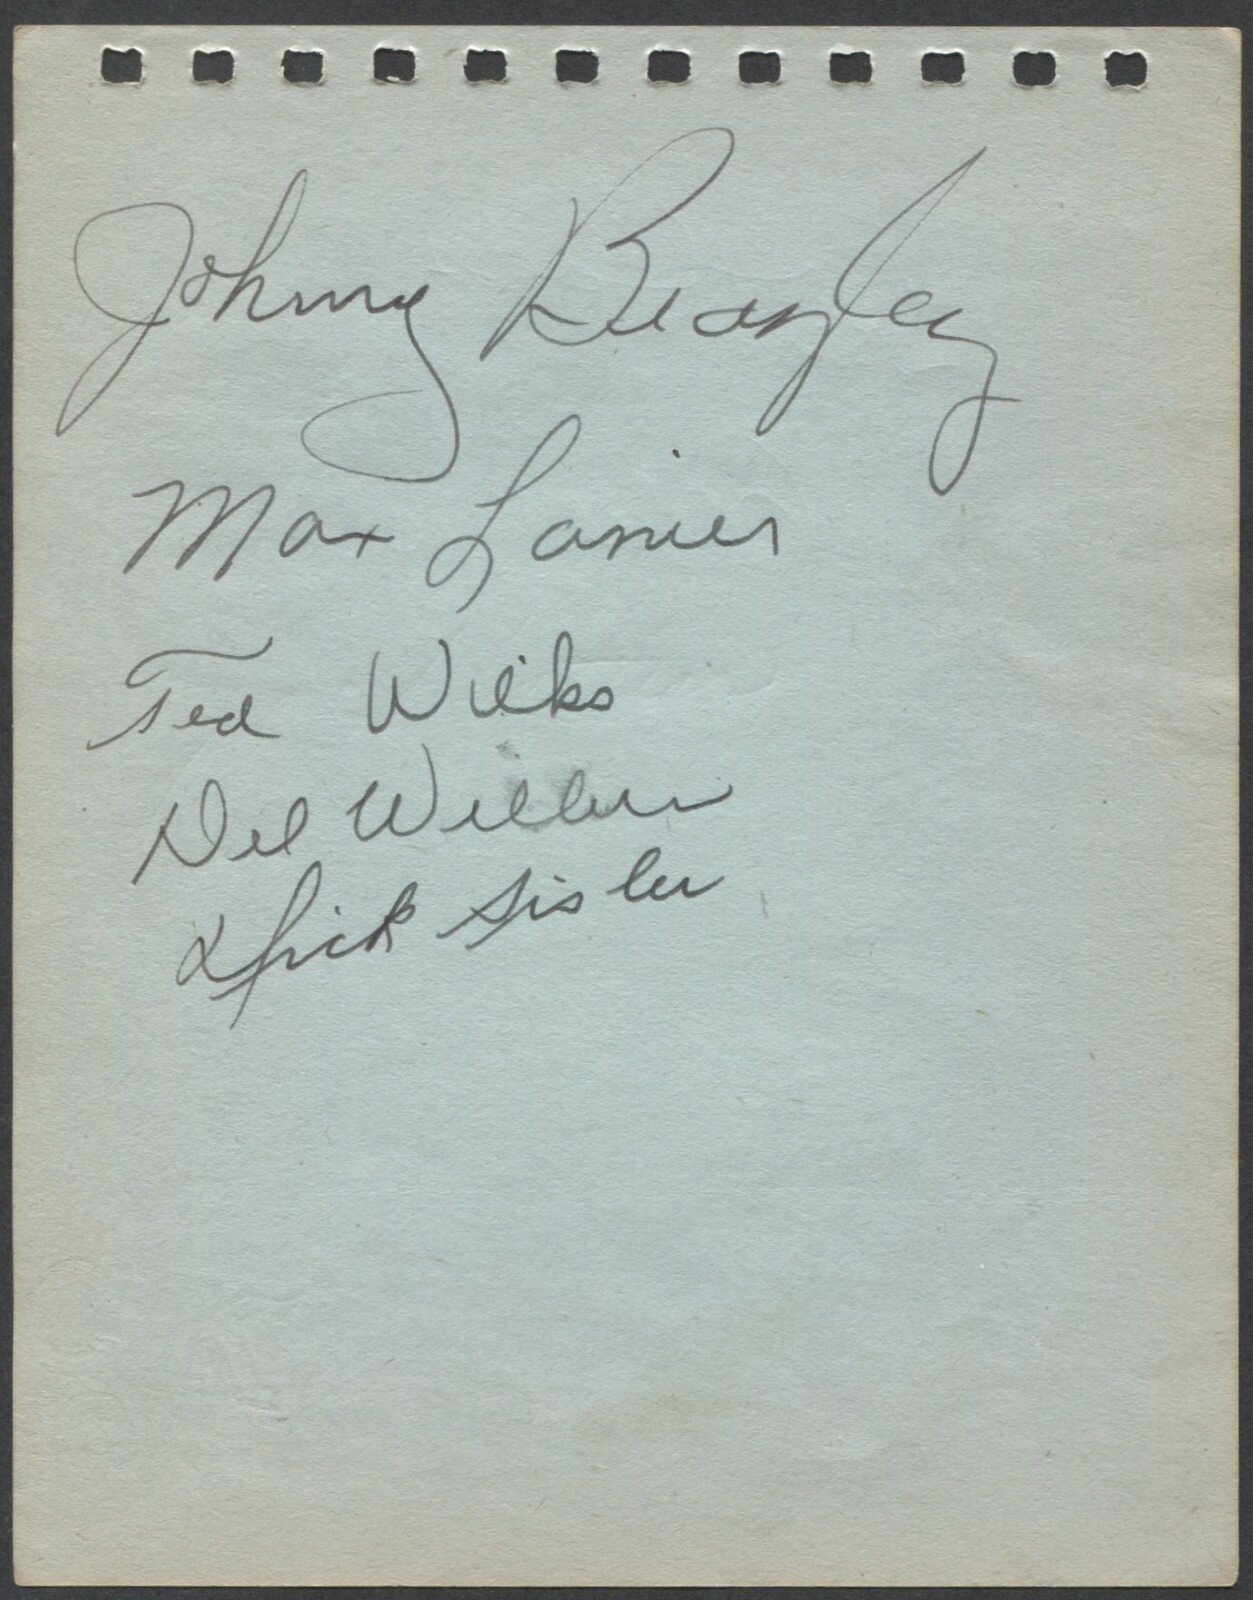 Johnny Beazley
Max Lanier
Ted Wilks
Del Wilber
Dick Sisler